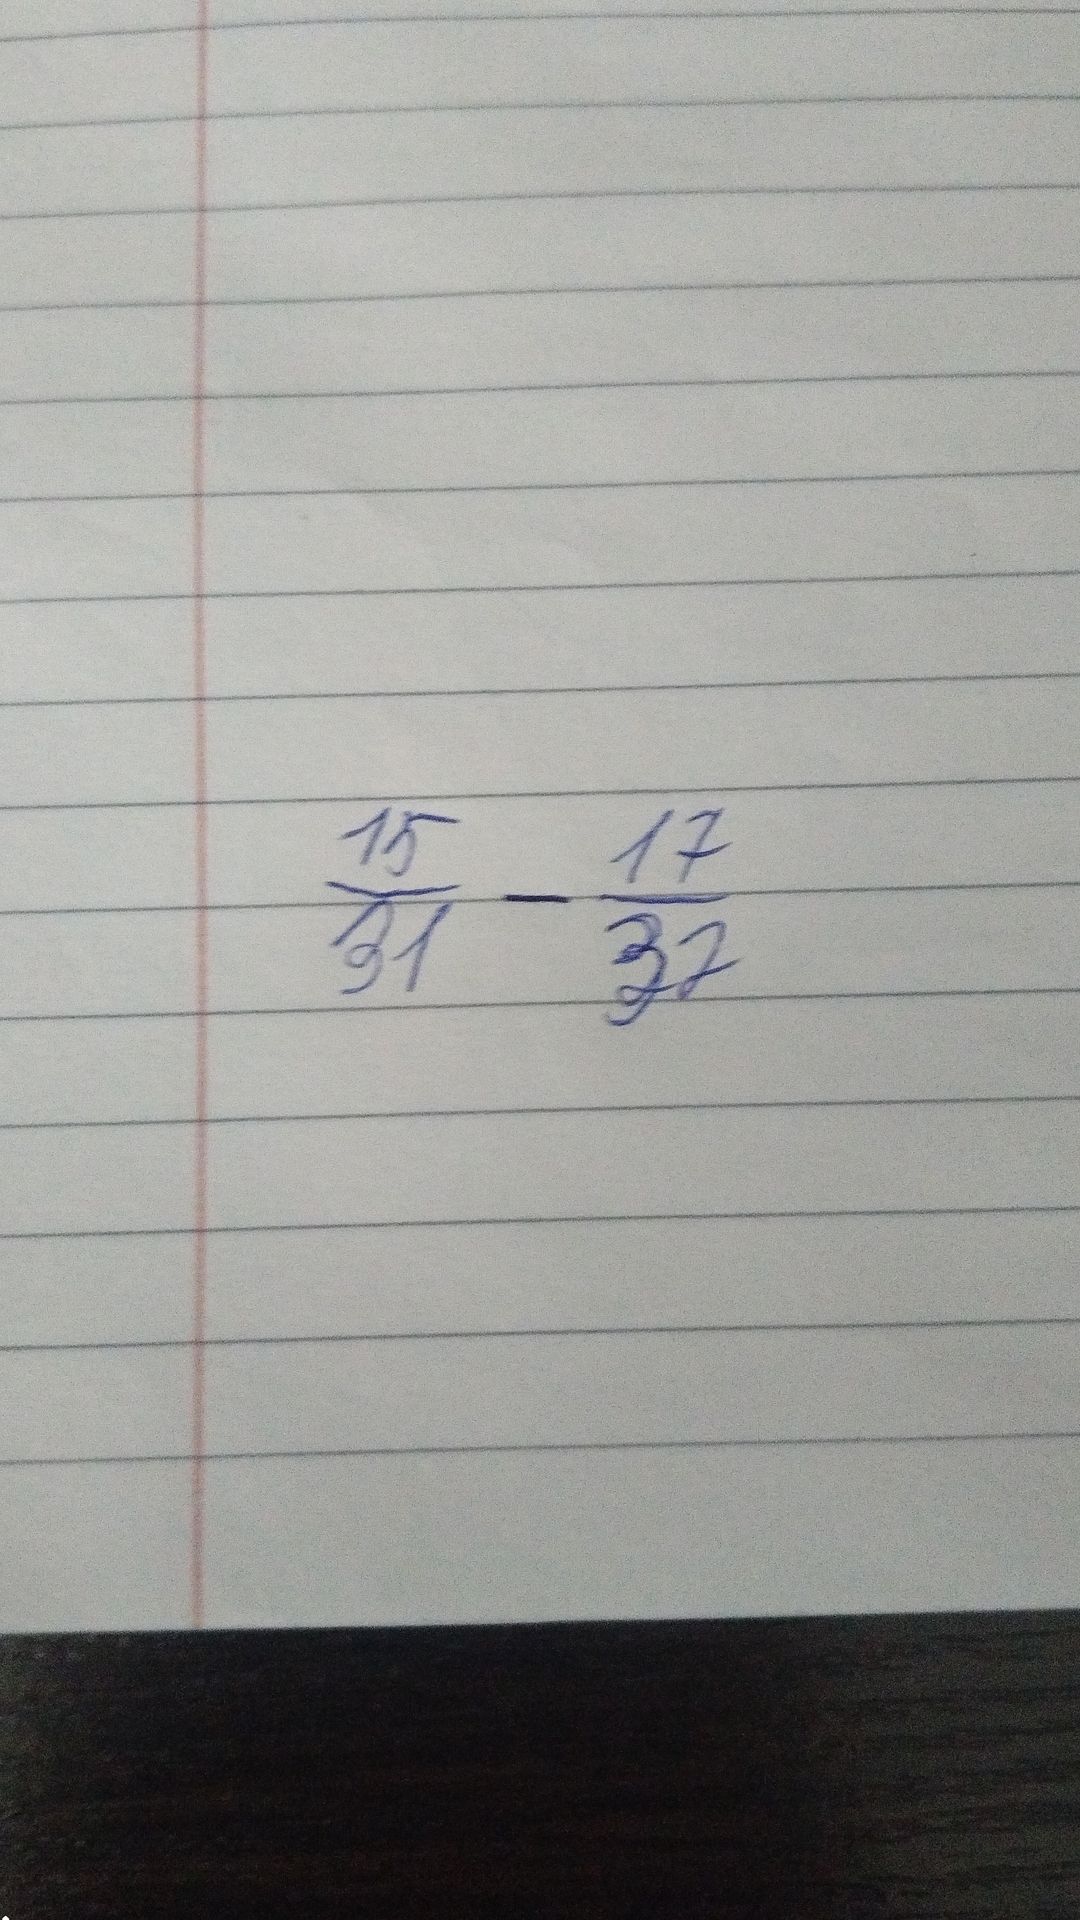 15/31 - 17/37